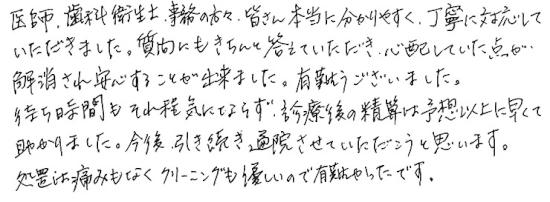 医師、歯科衛生士、事務の方々、皆さん本当に分かりやすく、丁寧に対応して
いただきました。質問にもきちんと答えていただき、心配していた点が
解消され安心することが出来ました。有難うございました。
待ち時間もそれ程気にならず、診療後の精算は予想以上に早くて
助かりました。今後、引き続き通院させていただこうと思います。
処置は痛みもなくクリーニングも優しいので有難かったです。